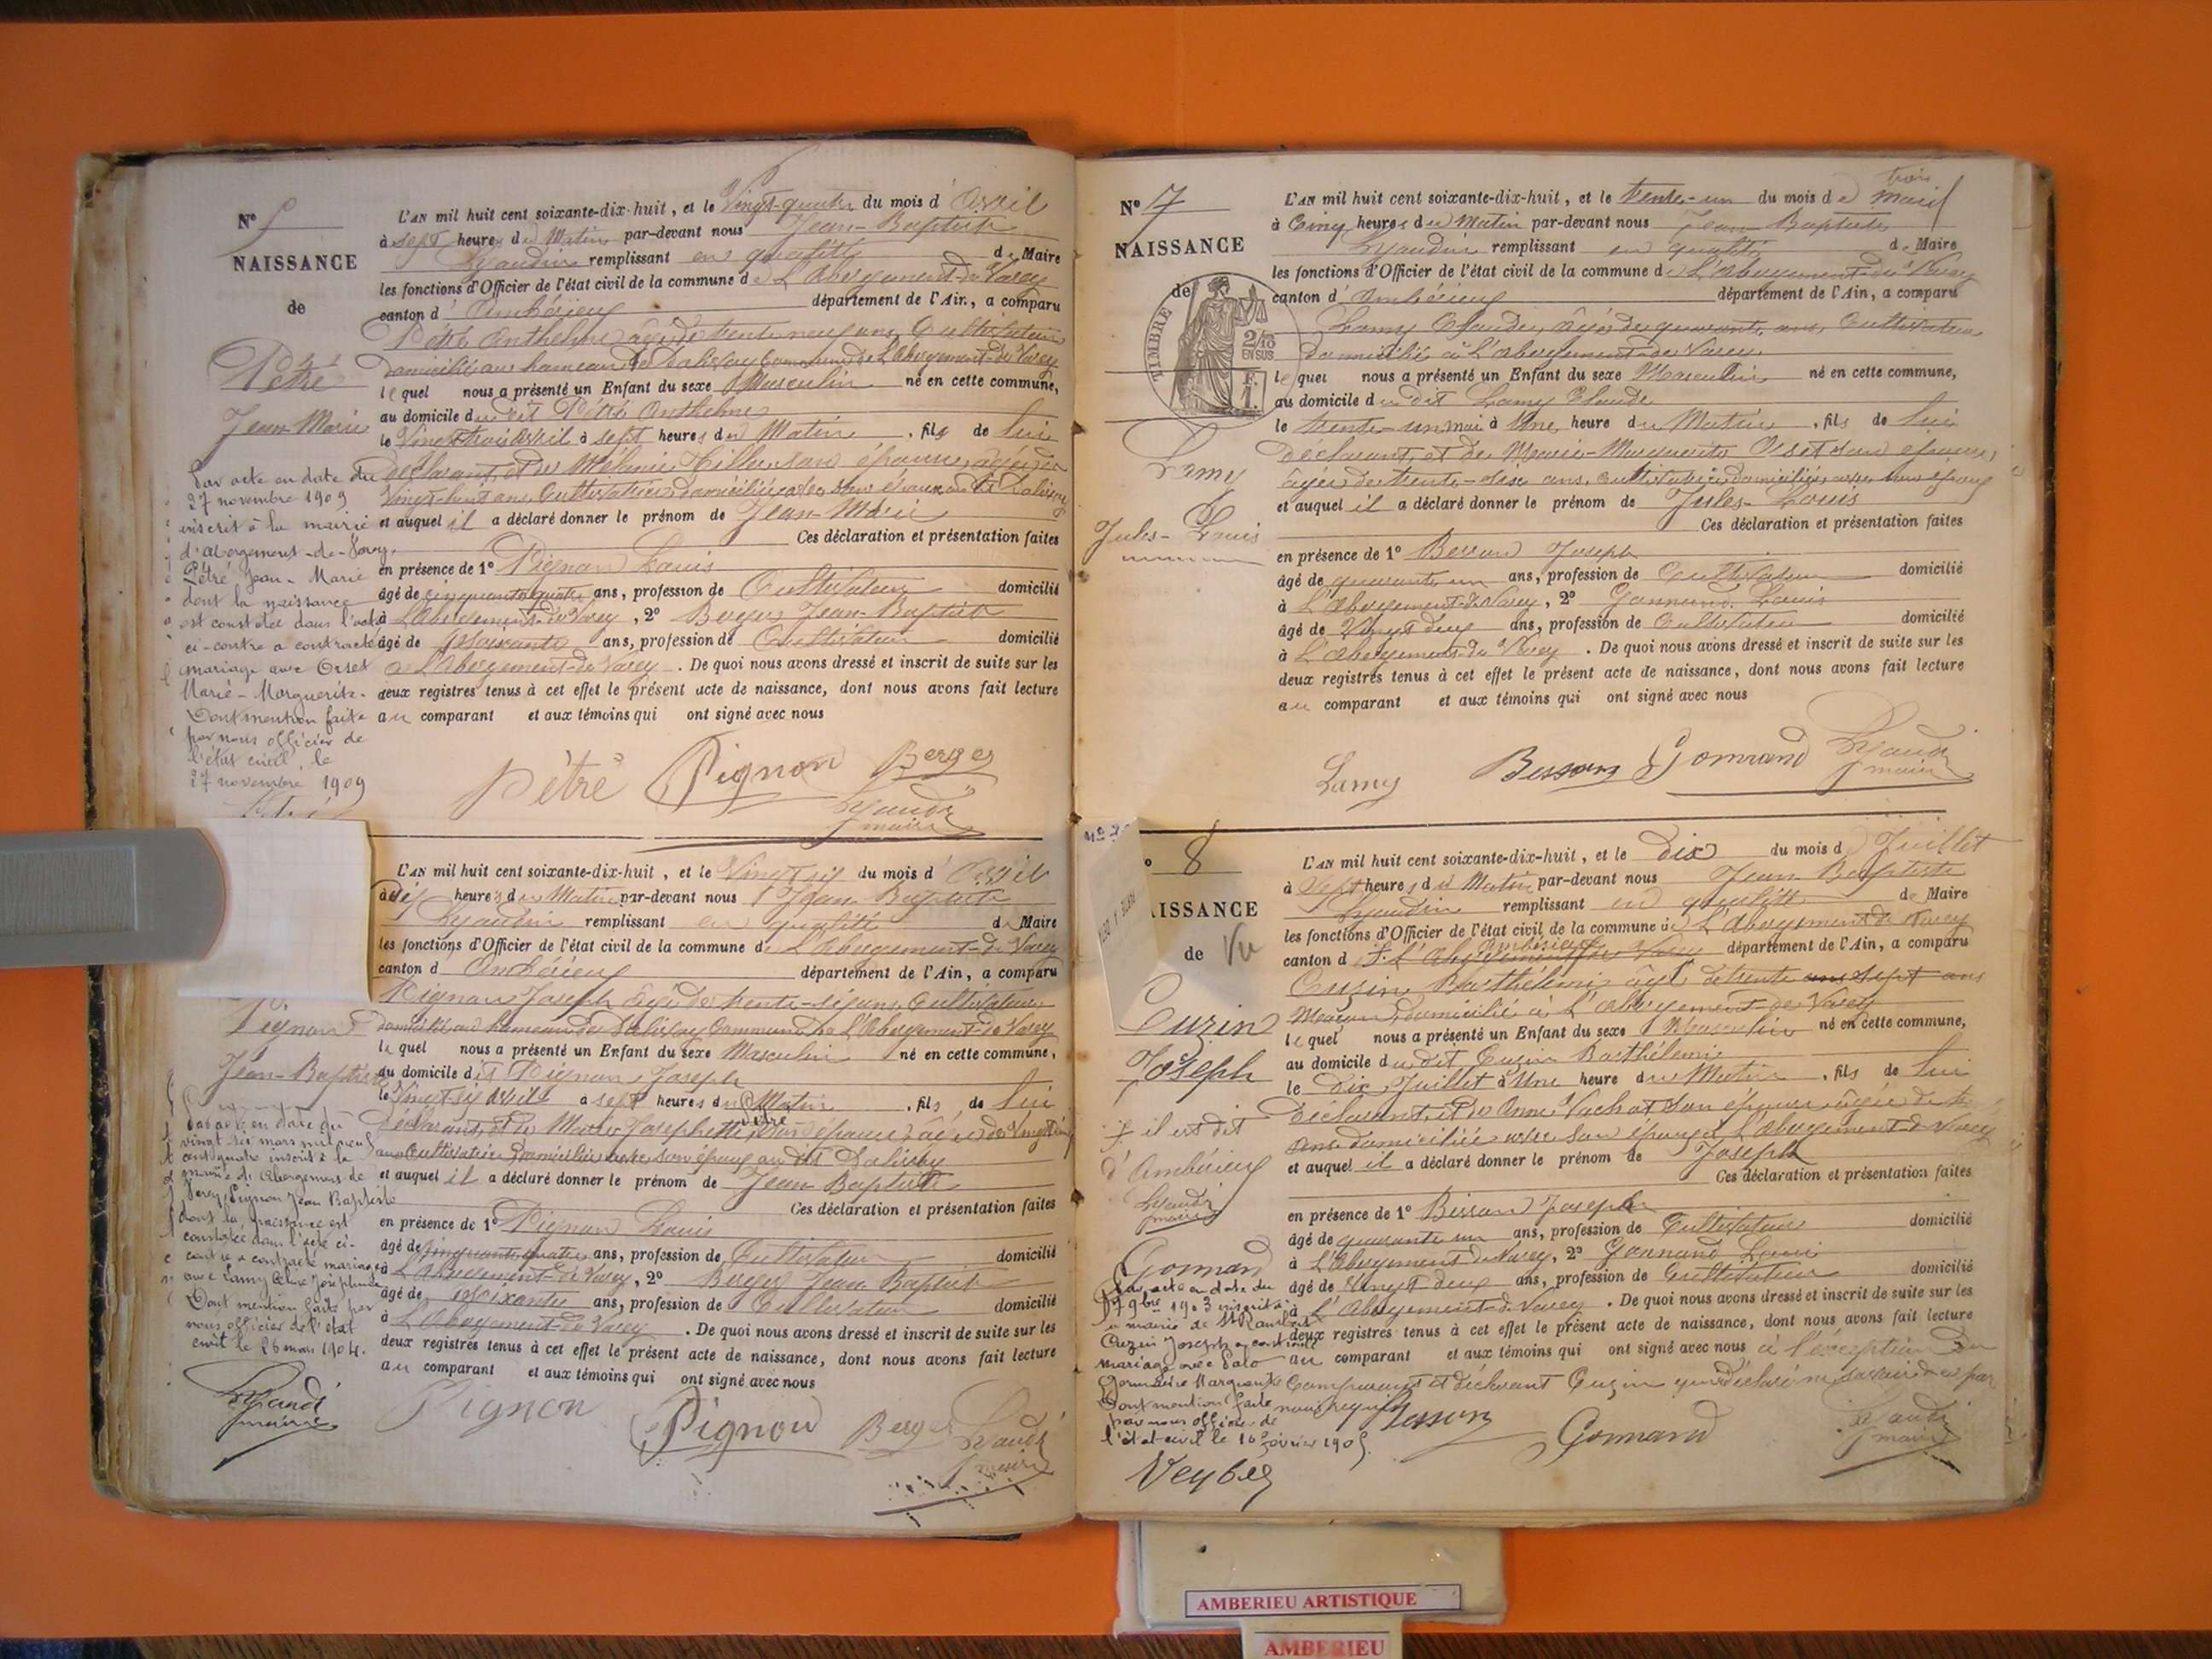 N° 5
NAISSANCE
de
Pétré
Jean-Marie
Par acte en date du
27 novembre 1909
inscrit à la mairie
d'Abergement-de-Varey,
Pétré Jean-Marie
dont la naissance
est constatée dans l'acte
ci-contre a contracté
mariage avec Orset
Marie-Marguerite.
Dont mention faite
par nous officier de
l'état civil, le
27 novembre 1909
L'AN mil huit cent soixante-dix-huit, et le Vingt-quatre du mois d'Avril
à sept heures du Matin par-devant nous Jean-Baptiste
Lyaudin remplissant en qualité de Maire
les fonctions d'Officier de l'état civil de la commune de L'Abergement-de-Varey
canton d'Ambérieu département de l'Ain, a comparu
Pétré Anthelme âgé de trente-neuf ans, Cultivateur
domicilié au hameau de Dalivoy Commune de L'Abergement-de-Varey
lequel nous a présenté un Enfant du sexe Masculin né en cette commune,
au domicile du dit Pétré Anthelme
le Vingt-trois Avril à sept heures du Matin, fils de lui
déclarant, et de Mélanie son épouse, âgée de
Vingt-huit ans Cultivatrice domiciliée avec son époux au dit Dalivoy
et auquel il a déclaré donner le prénom de Jean-Marie
Ces déclaration et présentation faites
en présence de 1° Pignon Louis
âgé de cinquante quatre ans, profession de Cultivateur domicilié
à L'Abergement-de-Varey, 2° Berger Jean-Baptiste
âgé de soixante ans, profession de Cultivateur domicilié
à L'Abergement-de-Varey. De quoi nous avons dressé et inscrit de suite sur les
deux registres tenus à cet effet le présent acte de naissance, dont nous avons fait lecture
au comparant et aux témoins qui ont signé avec nous
Pétré Pignon Berger
Lyaudi
maire
Pignon
Jean-Baptiste
Par acte en date du
vingt-six mars mil neuf
cent quatre inscrit à la
mairie de Abergement-de
Varey, Pignon Jean Baptiste
dont la naissance est
constatée dans l'acte ci-
contre a contracté mariage
avec Lamy Joséphine
Dont mention faite par
nous officier de l'état
civil le 26 mars 1904.
Lyaudi
maire
L'AN mil huit cent soixante-dix-huit, et le Vingt six du mois d'Avril
à dix heures du Matin par-devant nous Jean Baptiste
Lyaudin remplissant en qualité de Maire
les fonctions d'Officier de l'état civil de la commune de L'Abergement-de-Varey
canton d'Ambérieu département de l'Ain, a comparu
Pignon Joseph âgé de trente-six ans, Cultivateur
domicilié au hameau de Dalivoy Commune de L'Abergement-de-Varey
lequel nous a présenté un Enfant du sexe Masculin né en cette commune,
au domicile dudit Pignon Joseph
le Vingt six Avril à sept heures du Matin, fils de lui
Déclarant, et de Marie Josephette Pétré son épouse âgée de Vingt
ans Cultivatrice domiciliée avec son époux au dit Dalivoy
et auquel il a déclaré donner le prénom de Jean Baptiste
Ces déclaration et présentation faites
en présence de 1° Pignon Louis
âgé de cinquante quatre ans, profession de Cultivateur domicilié
à L'Abergement-de-Varey, 2° Berger Jean Baptiste
âgé de soixante ans, profession de Cultivateur domicilié
à L'Abergement-de-Varey. De quoi nous avons dressé et inscrit de suite sur les
deux registres tenus à cet effet le présent acte de naissance, dont nous avons fait lecture
au comparant et aux témoins qui ont signé avec nous
Pignon Pignon Berger Lyaudi
maire
N° 7
NAISSANCE
de
TIMBRE
2/10
EN SUS
F.
1.
Lamy
Jules-Louis
L'AN mil huit cent soixante-dix-huit, et le trente-un du mois de mai
à Cinq heures du Matin par-devant nous Jean Baptiste
Lyaudin remplissant en qualité de Maire
les fonctions d'Officier de l'état civil de la commune de L'Abergement-de-Varey
canton d'Ambérieu département de l'Ain, a comparu
Lamy Claude, âgé de quarante ans, Cultivateur
domicilié à L'Abergement-de-Varey
lequel nous a présenté un Enfant du sexe Masculin né en cette commune,
au domicile du dit Lamy Claude
le trente-un mai à Une heure du Matin, fils de lui
Déclarant, et de Marie-Marguerite Orset son épouse,
âgée de trente- ans, cultivatrice domiciliée avec son époux
et auquel il a déclaré donner le prénom de Jules-Louis
Ces déclaration et présentation faites
en présence de 1° Besson Joseph
âgé de quarante un ans, profession de Cultivateur domicilié
à L'Abergement-de-Varey, 2° Gonnand Louis
âgé de Vingt deux ans, profession de Cultivateur domicilié
à L'Abergement-de-Varey. De quoi nous avons dressé et inscrit de suite sur les
deux registres tenus à cet effet le présent acte de naissance, dont nous avons fait lecture
au comparant et aux témoins qui ont signé avec nous
Lamy Besson Gonnand Lyaudi
maire
8
ISSANCE
de Vu
Cuzin
Joseph
il est dit
d'Ambérieu
Lyaudi
maire
Gonnand
Par acte en date du
1903 inscrit à
la mairie de St Rambert
Cuzin Joseph a contracté
mariage avec
Germaine Marguerite
Dont mention faite
par nous officier de
l'état-civil le 10 février 1905.
Veybéz
L'AN mil huit cent soixante-dix-huit, et le dix du mois d Juillet
à Sept heures du Matin par-devant nous Jean Baptiste
Lyaudin remplissant en qualité de Maire
les fonctions d'Officier de l'état civil de la commune de L'Abergement de Varey
canton d Ambérieu département de l'Ain, a comparu
Cuzin Barthélemi âgé de trente sept ans
Maçon, domicilié à L'Abergement-de-Varey
lequel nous a présenté un Enfant du sexe Masculin né en cette commune,
au domicile du dit Cuzin Barthélemi
le Dix Juillet à Une heure du Matin, fils de lui
Déclarant, et de Anne Vachat son épouse âgée de
ans domiciliée avec son époux à L'Abergement-de-Varey
et auquel il a déclaré donner le prénom de Joseph
Ces déclaration et présentation faites
en présence de 1° Besson Joseph
âgé de quarante un ans, profession de Cultivateur domicilié
à L'Abergement-de-Varey, 2° Gonnand Louis
âgé de Vingt deux ans, profession de Cultivateur domicilié
à L'Abergement-de-Varey. De quoi nous avons dressé et inscrit de suite sur les
deux registres tenus à cet effet le présent acte de naissance, dont nous avons fait lecture
au comparant et aux témoins qui ont signé avec nous à l'exception du
Comparant et déclarant Cuzin qui a déclaré ne savoir de ce par
nous requis Besson Gonnand Lyaudi
maire
AMBERIEU ARTISTIQUE
AMBERIEU